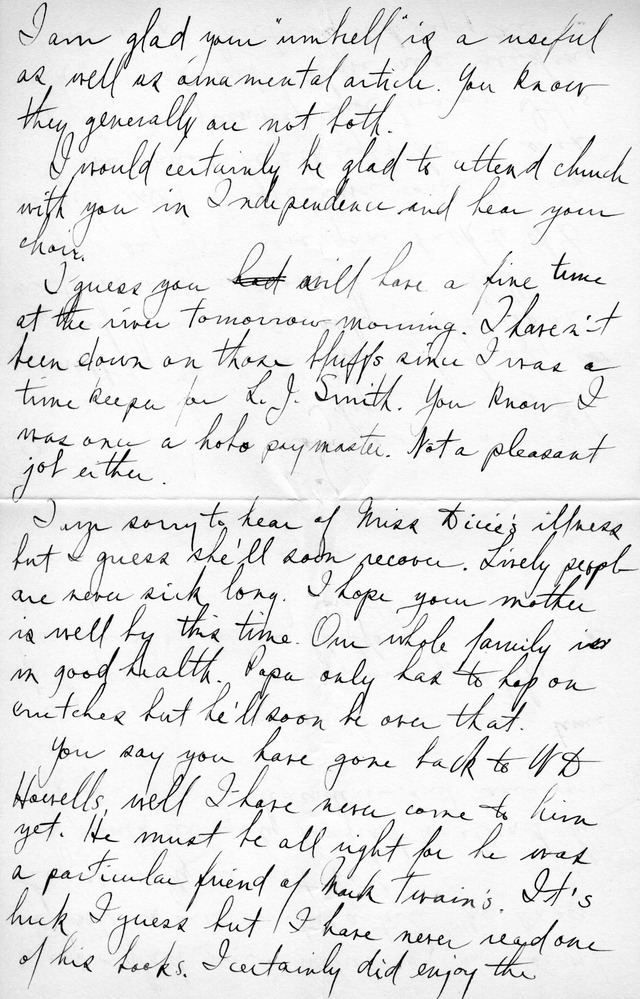 I am glad your "umbrell" is a useful
as well as ornamental article. You know
they generally are not both.
I would certainly be glad to attend church
with you in Independence and hear your
choir.
I guess you had will have a fine time
at the river tomorrow morning. I haven't
been down on those bluffs since I was a
time keeper for L. J. Smith. You know I
was once a hobo paymaster. Not a pleasant
job either.
I am sorry to hear of Miss Dicie's illness
but I guess she'll soon recover. Lively people
are never sick long. I hope your mother
is well by this time. Our whole family is
in good health. Papa only has to hop on
crutches but he'll soon be over that.
You say you have gone back to WD
Howells, well I have never come to him
yet. He must be all right for he was
a particular friend of Mark Twain's. It's
luck I guess but I have never read one
of his books. I certainly did enjoy the